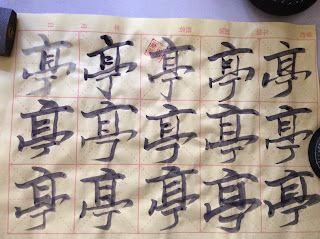 亭亭亭亭亭
亭亭亭亭亭
亭亭亭亭亭